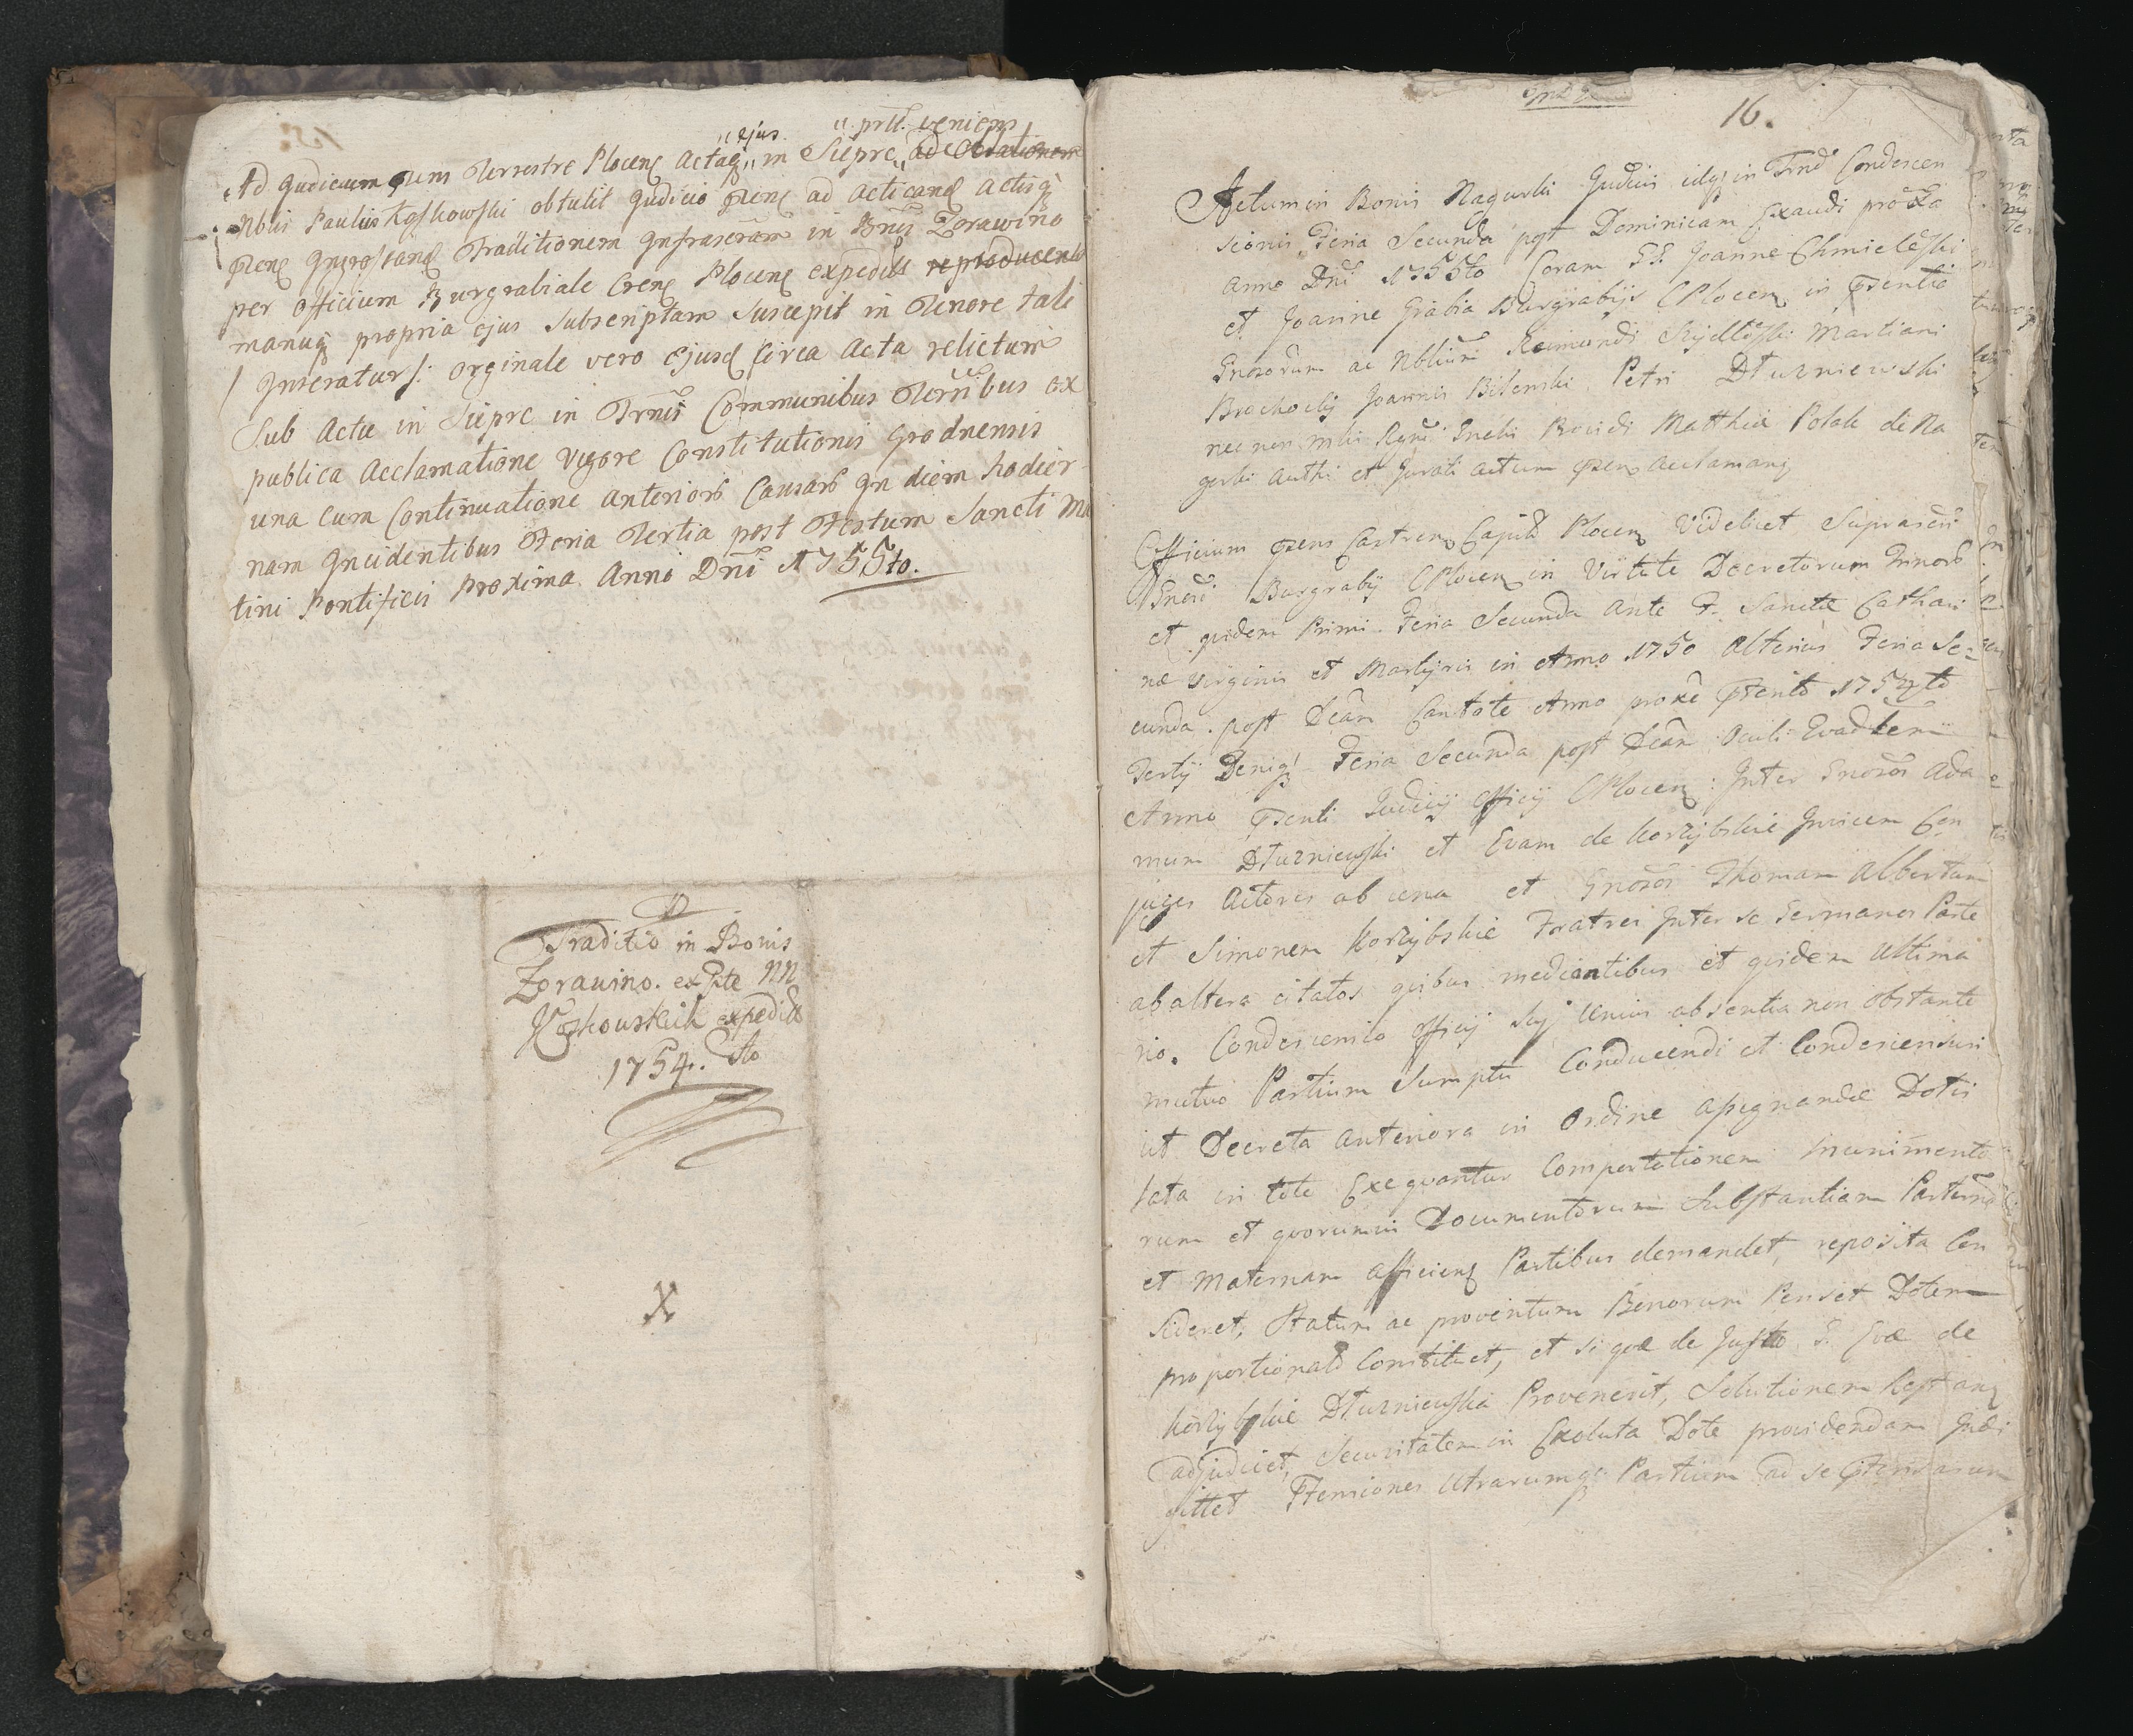 ejus. prtr. veniens
Ad Judicium pns Terrestre Plocens Actaq in Sieprc ad Oblationem
Nblis Paulus Koskowski obtulit Judicio pens ad acticand actisq
pens Ingrossand Traditionem Infrascram in Bnis Zorawino
per Officium Burgrabiale Crens Plocens expedit reproducend
manuq propria ejus Subscriptam suscepit in Tenore tali
/ Inseratur /: orginale vero ejusd circa Acta relictum
Sub Actu in Siepre in Trnis Communibus Terribus ex
publica acclamatione vigore Constitutionis Grodnensis
una cum Continuatione anterior Causar In diem hodier
nam Incidentibus Feria Tertia post Festum Sancti Mar
tini Pontificis proxima Anno Dni 1755to.
Traditio in Bonis
Zorawino. ex Pte NN
Koskowskich expedit
1754. to
X
16.
Actum in Bonis Nagurki Judicii idq in Trno Condescen
sionis Feria Secunda post Dominicam Exaudi proxa
Anno Dni 1755to Coram GG. Joanne Chmieleski
et Joanne Grabia Burgrabijs CPlocen in Psentia
Gnosorum ac Nblium Reimundi Martiani
Brochocij Joannis Bilenski Petri Dłuzniewski
nec non mlis Regni Gnelis Providi Matthiæ Polak de Na
gorki Authi et Jurati actum psens acclamans
Officium psens Castrens Capit Plocen Videlicet Suprascri
Gnosi Burgrabij CPlocen in Virtute Decretorum Trinor
et quidem Primi Feria Secunda ante F. Sanctæ Cathari
næ Virginis et Martyris in Anno 1750 Alterius Feria Se=
cunda post Dcam Cantate Anno proxe Pterito 1754to
Tertij Deniq Feria Secunda post Dcam Oculi Quadlem
Anno Psenti Judicij Officij CPlocen: Inter Gnosos Ada
mum Dłuzniewski et Evam de Korzybskie Invicem Con
juges Actores ab una et Gnosos Thomam Albertum
et Simonem Korzybskie Fratres Inter se Germanos Parte
ab altera citatos quibus mediantibus et quidem Ultima
rio. Condescensio Officij Sui Unius absentia non obstante
mutuo Partium Sumptu Conducendi et Condescensuri
ut Decreta anteriora in Ordine assignandæ Dotis
lata in toto Exequantur Comportationem munimento
rum et quorumvis Documentorum Substantiam Paternam
et Maternam afficiens Partibus demandet, reposita Con
sideret, Statum ac proventum Bonorum Penset Dotem
proportionato Constituet, et si quæ de Justo G. Evæ de
Korzybskie Dłuzniewska Provenerit, Solutionem Restans
adjudicet, Securitatem in Exoluta Dote providendam Indi
gittet Ptensiones Utrarumq Partium ad se